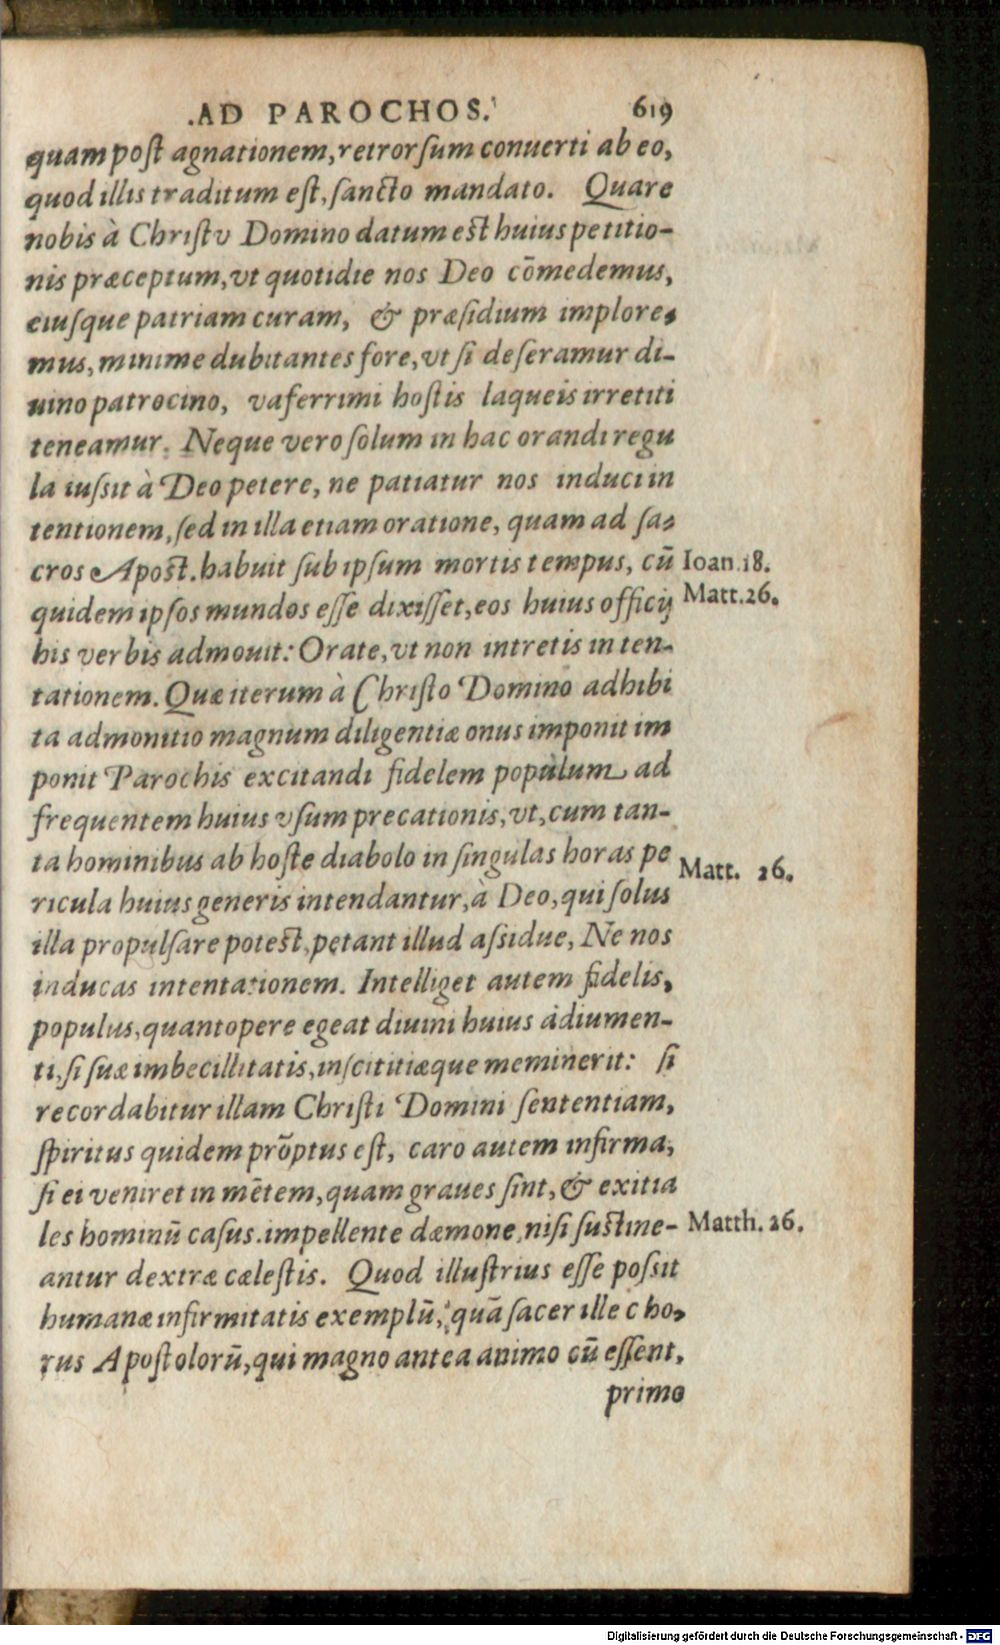 .AD PAROCHOS. 619
quam post agnationem, retrorsum conuerti ab eo,
quod illis traditum est, sancto mandato. Quare
nobis à Christo Domino datum est huius petitio-
nis præceptum, vt quotidie nos Deo cōmedemus,
eiusque patriam curam, & præsidium implore-
mus, minime dubitantes fore, vt si deseramur di-
uino patrocino, vaferrimi hostis laqueis irretiti
teneamur. Neque vero solum in hac orandi regu
la iussit à Deo petere, ne patiatur nos induci in
tentionem, sed in illa etiam oratione, quam ad sa-
cros Apost. habuit sub ipsum mortis tempus, cū Ioan. 18.
quidem ipsos mundos esse dixisset, eos huius officij Matt. 26.
his verbis admouit: Orate, vt non intretis in ten-
tationem. Quæ iterum à Christo Domino adhibi
ta admonitio magnum diligentiæ onus imponit im
ponit Parochis excitandi fidelem populum ad
frequentem huius vsum precationis, vt, cum tan-
ta hominibus ab hoste diabolo in singulas horas pe
ricula huius generis intendantur, à Deo, qui solus Matt. 26.
illa propulsare potest, petant illud assidue, Ne nos
inducas intentationem. Intelliget autem fidelis,
populus, quantopere egeat diuini huius adiumen-
ti, si suæ imbecillitatis, inscititiæque meminerit: si
recordabitur illam Christi Domini sententiam,
spiritus quidem prōptus est, caro autem infirma,
si ei veniret in mētem, quam graues sint, & exitia
les hominū casus. impellente dæmone, nisi sustine- Matth. 26.
antur dextræ cælestis. Quod illustrius esse possit
humanæ infirmitatis exemplū, quā sacer ille cho-
rus Apostolorū, qui magno antea animo cū essent,
primo
Digitalisierung gefördert durch die Deutsche Forschungsgemeinschaft - DFG